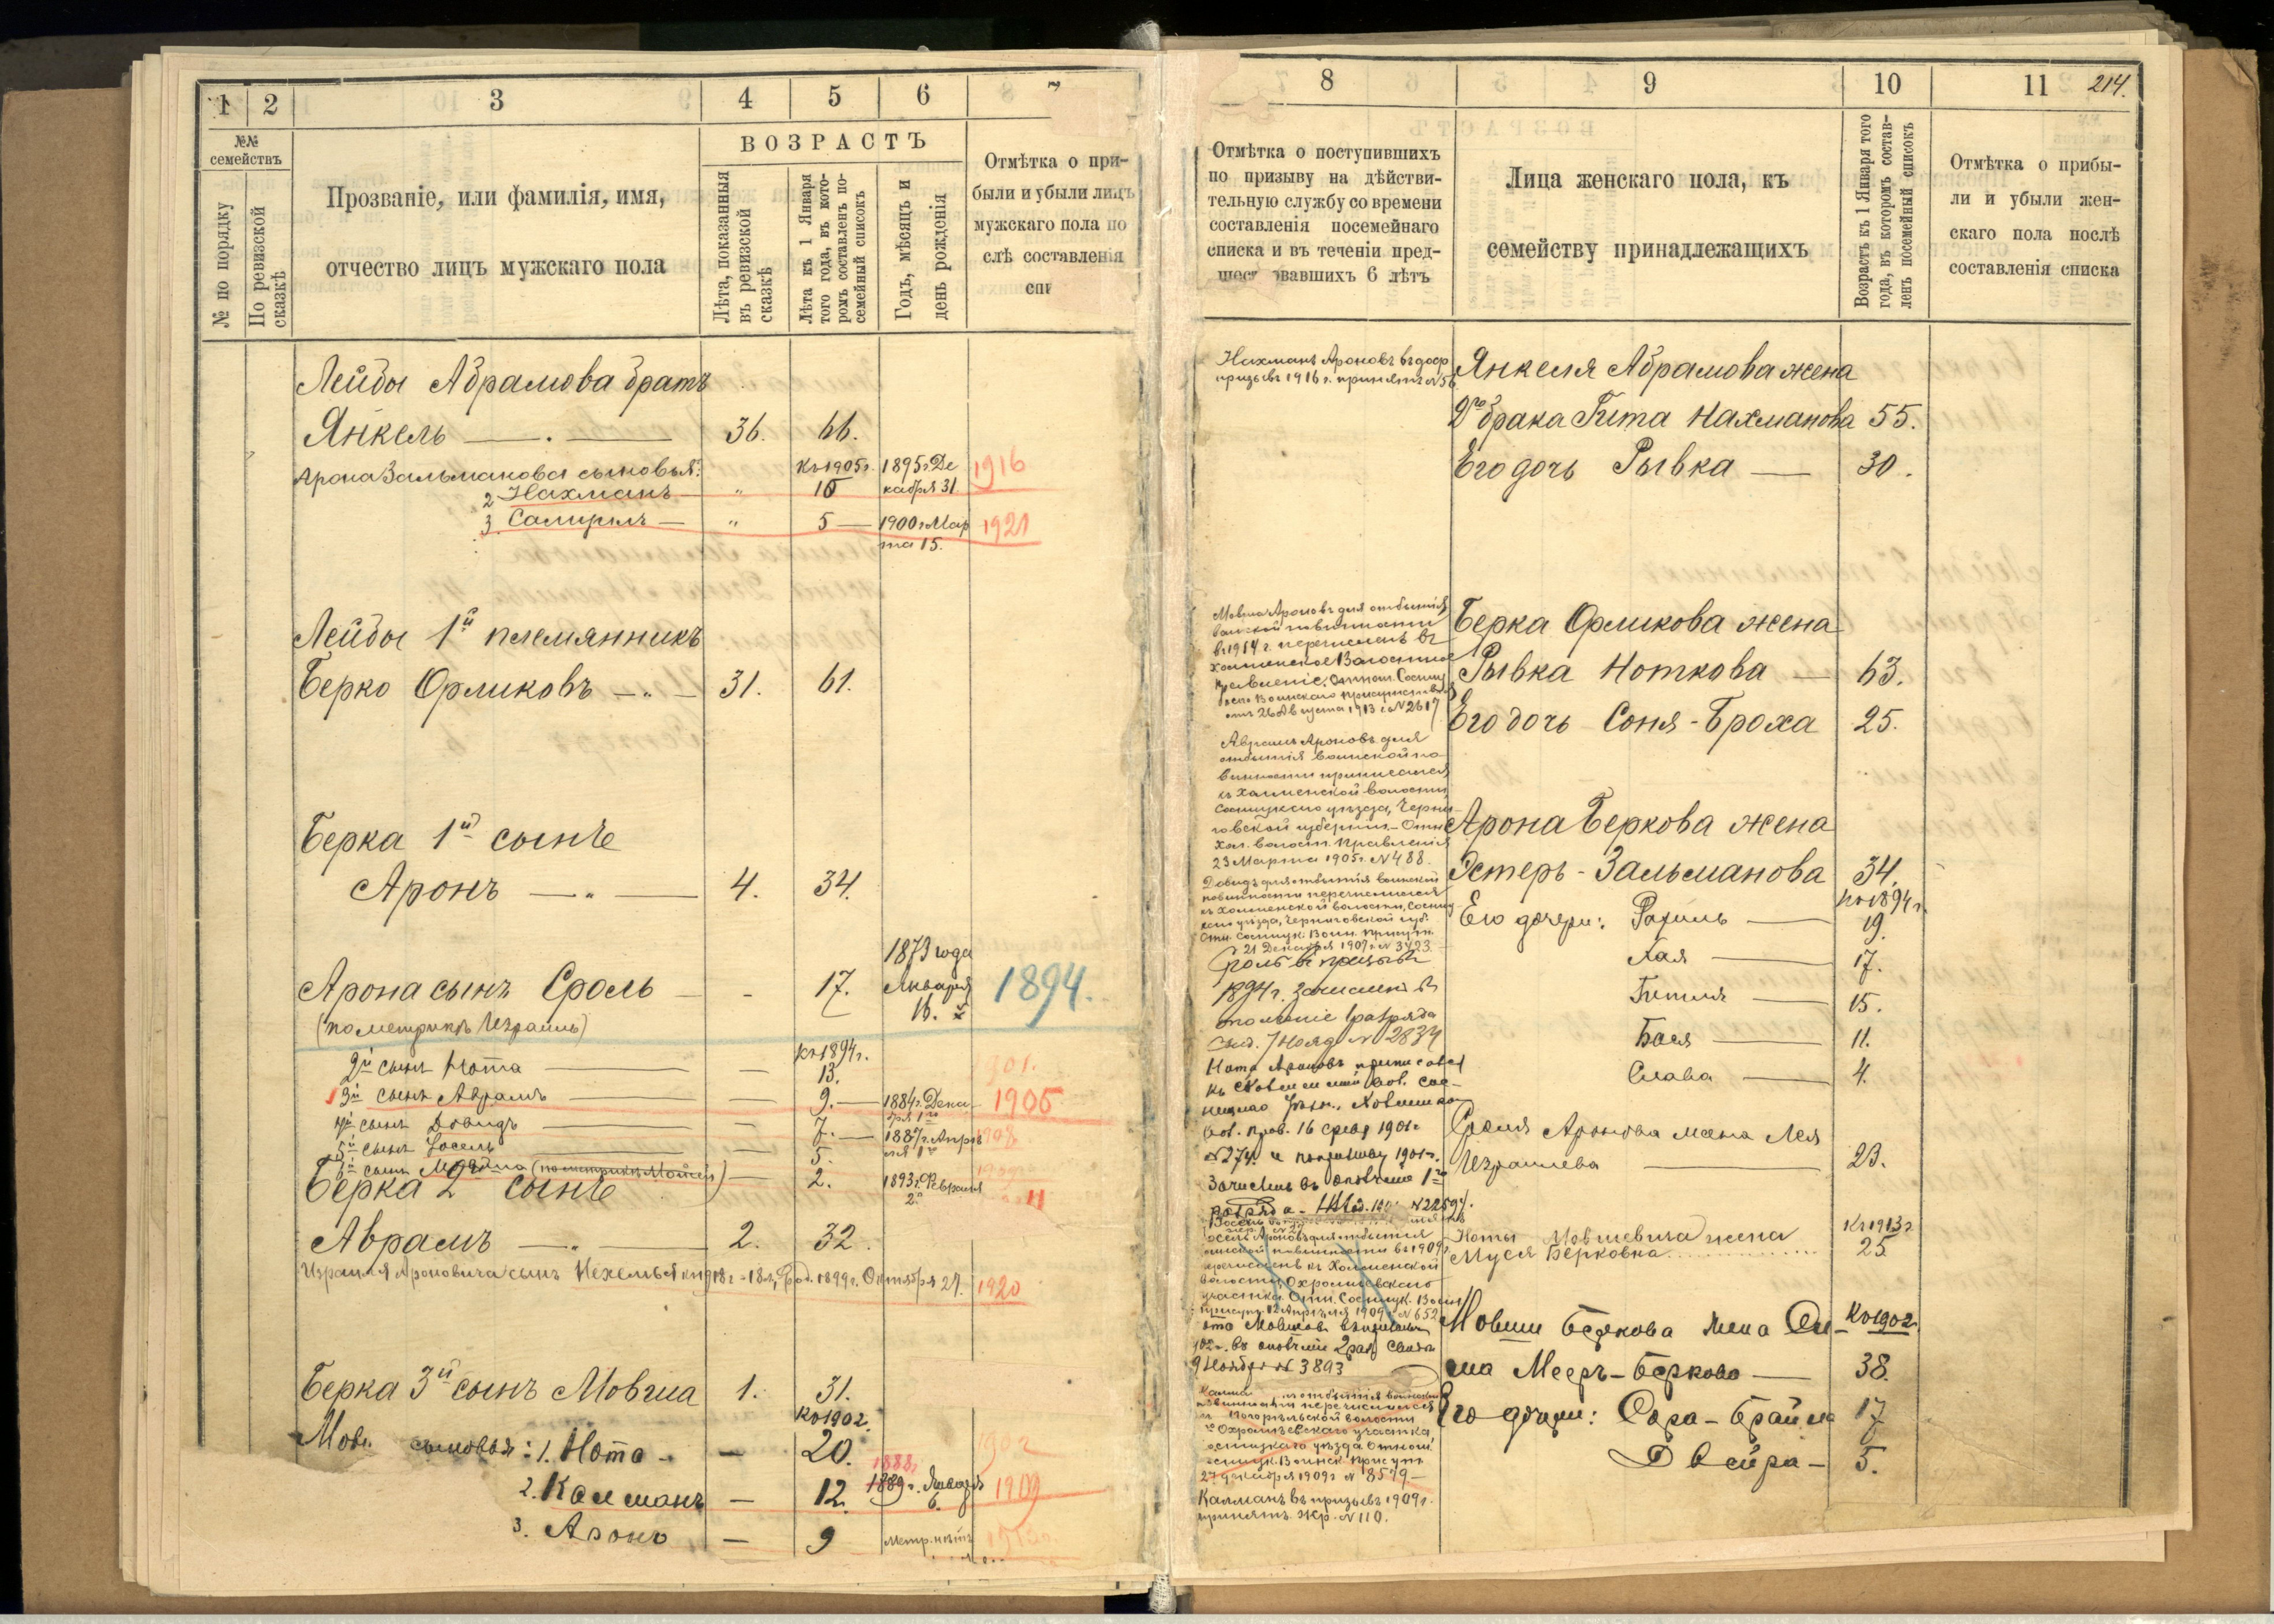 1 2 3 4 5 6 7
№№ семействъ
№ по порядку
По ревизской сказкѣ
Прозваніе, или фамилія, имя,
отчество лицъ мужскаго пола
ВОЗРАСТЪ
Лѣта, показанныя въ ревизской сказкѣ
Лѣта къ 1 Января того года, въ которомъ составленъ посемейный списокъ
Годъ, мѣсяцъ и день рожденія
Отмѣтка о при-
были и убыли лицъ
мужскаго пола по
слѣ составленія
спи
Лейбы Абрамова братъ
Янкель 36. 66.
Арона Зальманова сыновья: Къ 1905 г. 1895 г. Де 1916
2 Нахманъ " 10 кабря 31
3 Самуилъ " 5 1900 г. Мар 1921
та 15.
Лейбы 1й племянникъ
Берко Орликовъ 31. 61.
Берка 1й сынъ
Аронъ 4. 34.
1873 года
Арона сынъ Сроль - 17. Января 1894.
(по метрикѣ Израиль) 16.
Къ 1894 г.
2й сынъ Нота — 13. 901.
3й сынъ Абрамъ — 9. 1884 г. Дека 1905
бря 1го
4й сынъ Довидъ — 7. 1887 г. Апрѣ 1908
5й сынъ Іосель — 5. ля 1го
6й сынъ Мовша (по метрикѣ Мойсей) — 2. 1893 г. Февраля
Берка 2й сынъ 2. 11
Абрамъ 2. 32.
Израиля Ароновича сынъ Нехемья къ 1918 г. - 18 л., род. 1899 г. Октября 27. 1920
Берка 3й сынъ Мовша 1. 31.
Къ 1902.
Мов. сыновья: 1. Нота — 20. 1902
1888 г.
2. Калманъ — 12. 1889 г. Января 1909
6.
3. Аронъ — 9 метр. нѣтъ
8 9 10 11 214.
Отмѣтка о поступившихъ
по призыву на дѣйстви-
тельную службу со времени
составленія посемейнаго
списка и въ теченіи пред-
шест вовавшихъ 6 лѣтъ
Лица женскаго пола, къ
семейству принадлежащихъ
Возрастъ къ 1 Января того года, въ которомъ состав-ленъ посемейный списокъ
Отмѣтка о прибы-
ли и убыли жен-
скаго пола послѣ
составленія списка
Нахманъ Ароновъ въ доср
призывъ 1916 г. принятъ № 56
Янкеля Абрамова жена
2го брака Гита Нахманова 55.
Его дочь Рывка 30.
Мовша Ароновъ для отбытія
воинской повинности
въ 1914 г. перечисленъ въ
Холменское Волостное
Правленіе. Отнош. Сосниц
каго Воинскаго Присутствія
отъ 26 Августа 1913 г. № 2617
Берка Орликова жена
Рывка Ноткова 63.
Его дочь Соня-Броха 25.
Абрамъ Ароновъ для
отбытія воинской по-
винности приписался
къ Холменской волости,
Сосницкаго уѣзда, Черни-
говской губерніи. - Отн.
Хол. волост. Правленія
23 Марта 1905 г. № 488.
Арона Беркова жена
Эстеръ-Зальманова 34.
Довидъ для отбытія воинской
повинности перечислился
къ Холменской волости, Сосниц-
каго уѣзда, Черниговской губ.
Отн. Сосницк. Воин. Присут.
21 Декабря 1907 г. № 3423
Къ 1894 г.
Его дочери: Рахиль 19.
Хая 17.
Гитля 15.
Бася 11.
Слава 4.
Сроль въ призывъ
1894 г. зачисленъ въ
ополченіе 1 разряда
Свид. 7 Нояб. № 2834
Нота Ароновъ приписался
къ Холменской вол. Сос-
ницкаго уѣзд., Холменскаго
Вол. Прав. 16 1901 г.
№ 274. и по призыву 1901 г.
Зачисленъ въ ополченіе 1го
разряда № 2259.
Сроля Аронова жена Лея
Израилева 23.
Къ 1913 г.
Ноты Мовшевича жена
Муся Берковна 25.
Іосель Ароновъ для отбытія
воинской повинности въ 1909 г.
перечисленъ къ Холменской
волости, Охромѣевскаго
участка. Отн. Сосницк. Воин.
присут. 12 Апрѣля 1909 г. № 652
Нота Мовшовъ въ призывъ
902 г. въ ополченіе 2 раз. Свид.
9 Ноября № 3893
Мовши Беркова жена Къ 1902.
Мееръ-Беркова 38.
Его дочери: Сора-Брайна 17
Двейра 5.
отбытія воинской
повинности перечислился
къ Погорѣльской волости
Охрамѣевскаго участка,
Сосницкаго уѣзда Отнош.
Сосницк. Воинск. Присут.
27 октября 1909 г. № 8579
Калманъ въ призывъ 1909 г.
принятъ жр. № 110.